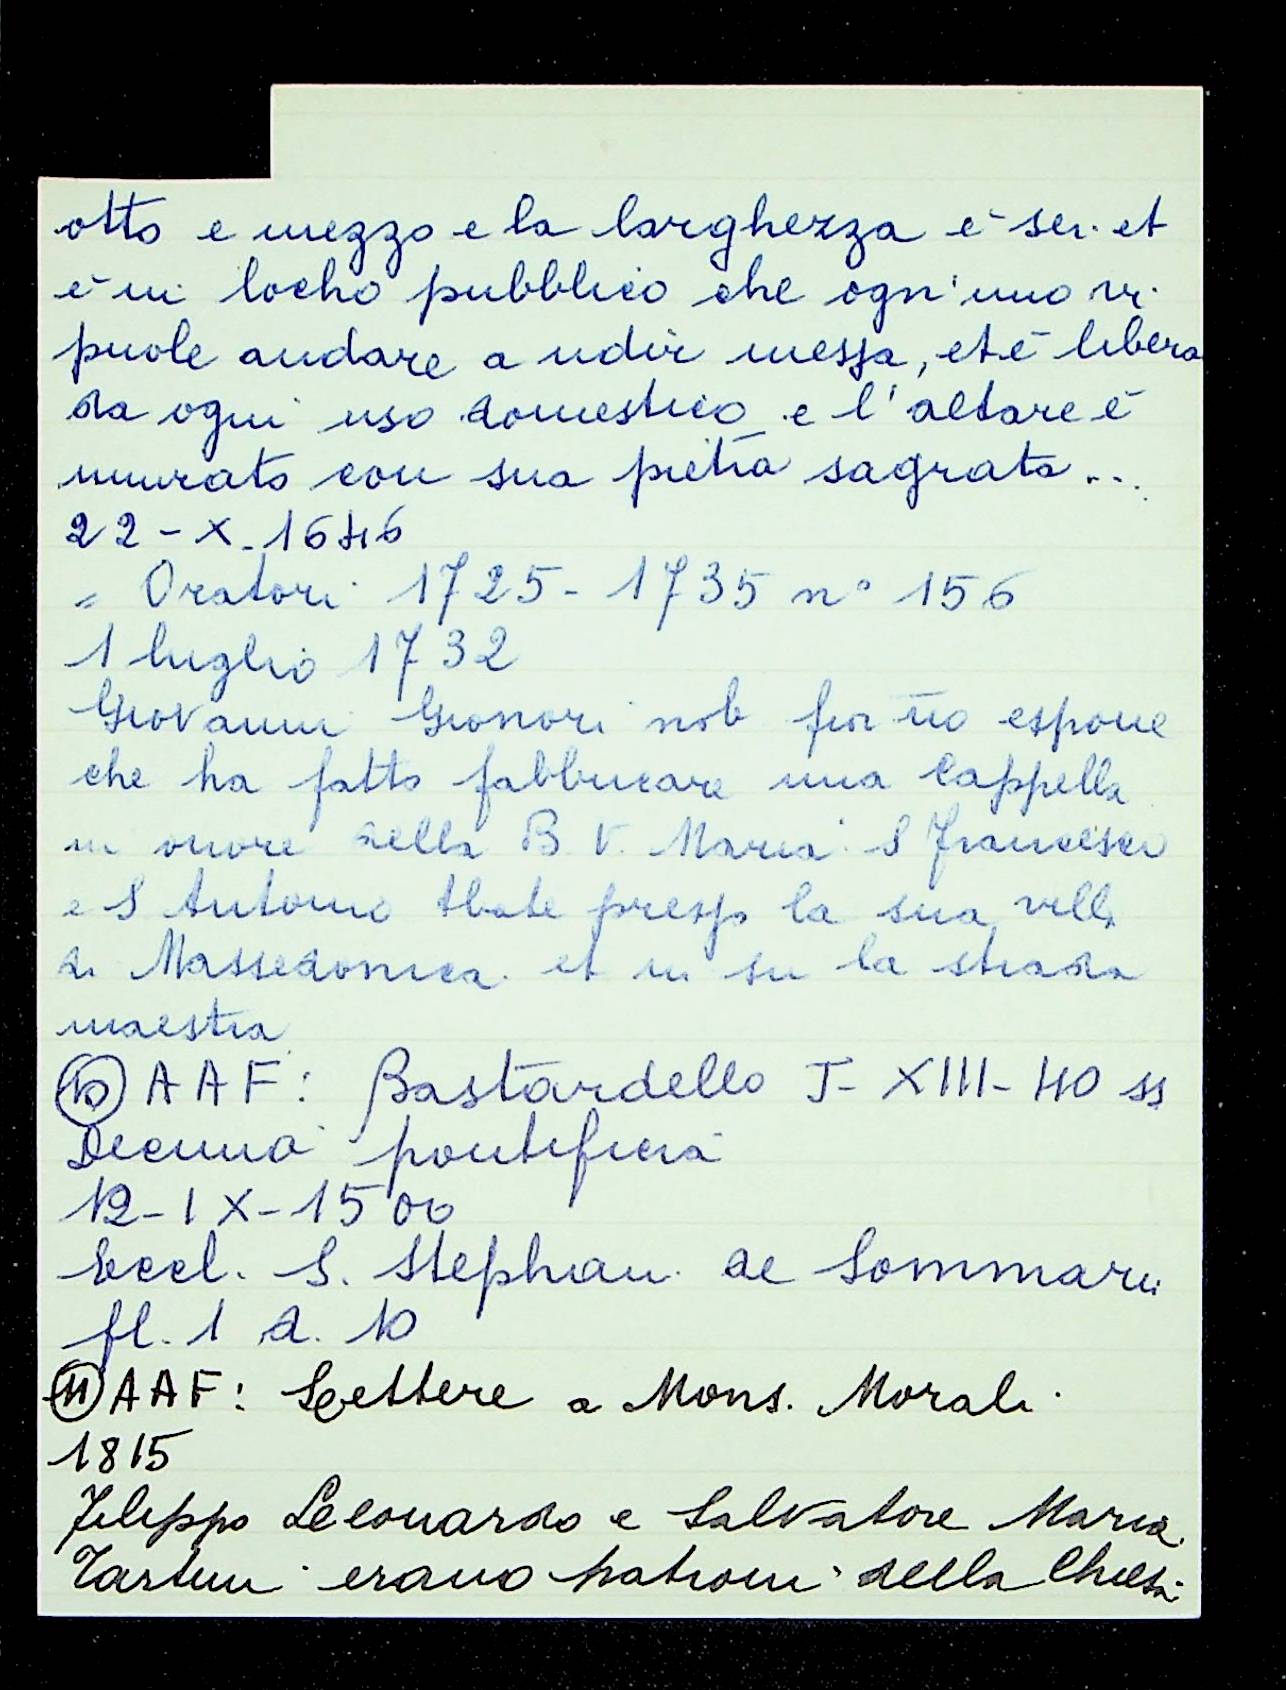 otto e mezzo e la larghezza è sei. et
è in locho pubblico che ogn'uno vi
puole andare a udir messa, et è libera
da ogni uso domestico e l'altare è
murato con sua pietra sagrata...
22-X-1646
= Oratori 1725-1735 n° 156
1 luglio 1732
Giovanni nob fior no espone
che ha fatto fabbricare una Cappella
in onore della B. V. Maria S Francesco
e S Antonio Abate presso la sua villa
di Massedonica et in su la strada
maestra
10 AAF: Bastardello I-XIII-40 ss
Decima pontificia
12-IX-1500
Eccl. S. Stephani de Sommarii
fl. 1 d. 10
11 AAF: Lettere a Mons. Morali
1815
Filippo Leonardo e Salvatore Maria
Tartini erano patroni della Chiesa